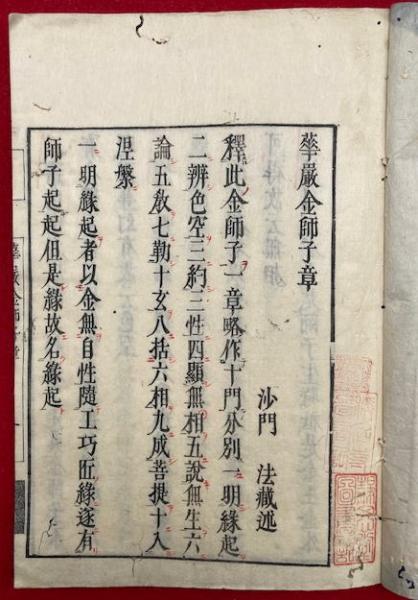 華嚴金師子章
沙門 法藏述
釋此金師子一章略作十門分別一明緣起
二辨色空三約三性四顯無相五說無生六
論五敎七勒十玄八括六相九成菩提十入
涅槃
一明緣起者以金無自性隨工巧匠緣遂有
師子起起但是緣故名緣起
華嚴金師子章